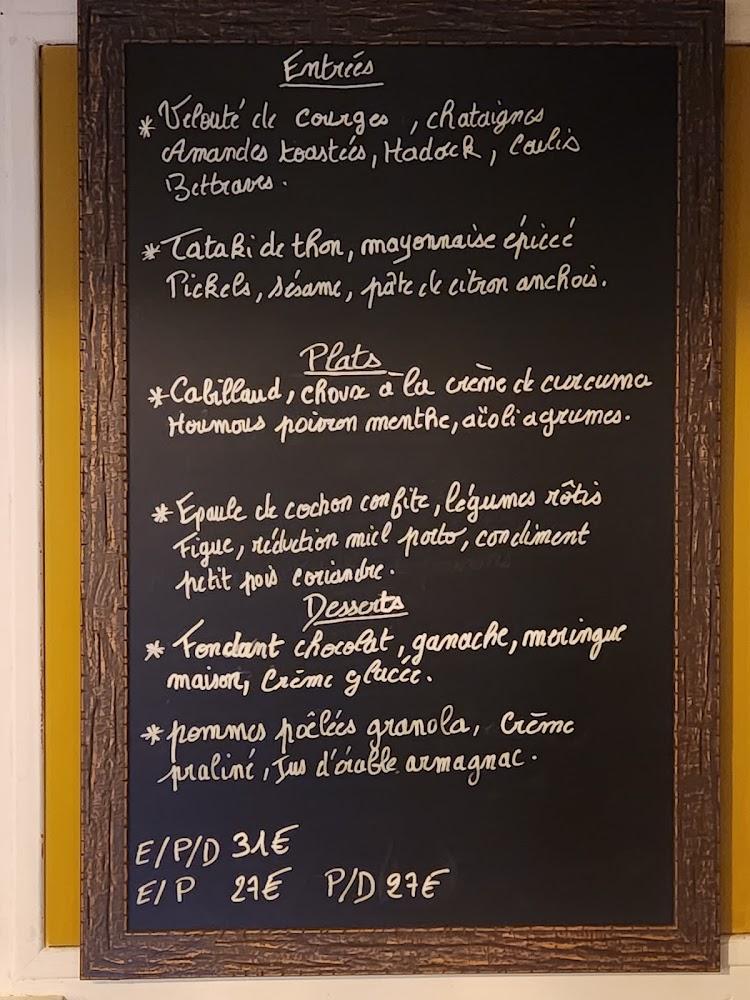 Entrées
* Velouté de courges, chataignes
Amandes toastées, Hadock, Coulis
Bettraves.
* Tataki de thon, mayonnaise épicée
Pickels, sésame, pâte de citron anchois.
Plats
* Cabillaud, choux à la crème de curcuma
Houmous poivron menthe, aïoli agrumes.
* Epaule de cochon confite, légumes rôtis
Figue, réduction miel porto, condiment
petit pois coriandre.
Desserts
* Fondant chocolat, ganache, meringue
maison, Crème glacée.
* pommes poêlées granola, Crème
praliné, Jus d'érable armagnac.
E/P/D 31€
E/P 27€ P/D 27€